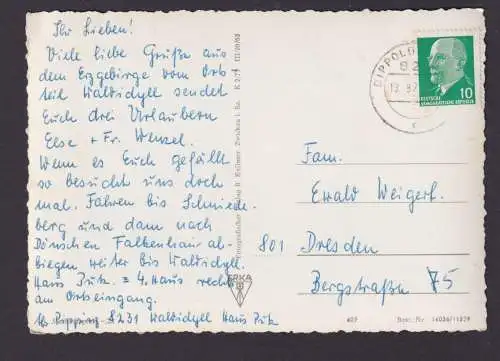 Ihr Lieben!
Viele liebe Grüße aus
dem Erzgebirge vom Orts
teil Waldidyll sendet
Euch drei Urlaubern
Else + Fr. Wenzel.
Wenn es Euch gefällt
so besucht uns doch
mal. Fahren bis Schmiede-
berg und dann nach
Dönschen Falkenhain ab-
biegen weiter bis Waldidyll.
Haus Putz = 4. Haus rechts
am Ortseingang.
Pipping 8231 Waldidyll Haus Putz
DIPPOLD
82
13.8.7
c
10
DEUTSCHE
DEMOKRATISCHE REPUBLIK
Fam.
Ewald Weigert.
801 Dresden
Bergstraße 75
ERKA
K 2/71 III/26/62
409
Best.-Nr. 14036/11829